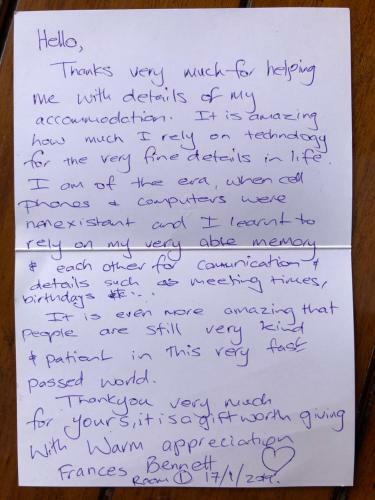 Hello,
Thanks very much for helping
me with details of my
accommodation. It is amazing
how much I rely on technology
for the very fine details in life.
I am of the era, when cell
phones & computers were
nonexistent and I learnt to
rely on my very able memory
& each other for comunication &
details such as meeting times,
birthdays etc...
It is even more amazing that
people are still very kind
& patient in this very fast
passed world.
Thankyou very much
for yours, it is a gift worth giving
With Warm appreciation
Frances Bennett
Room 1 17/1/